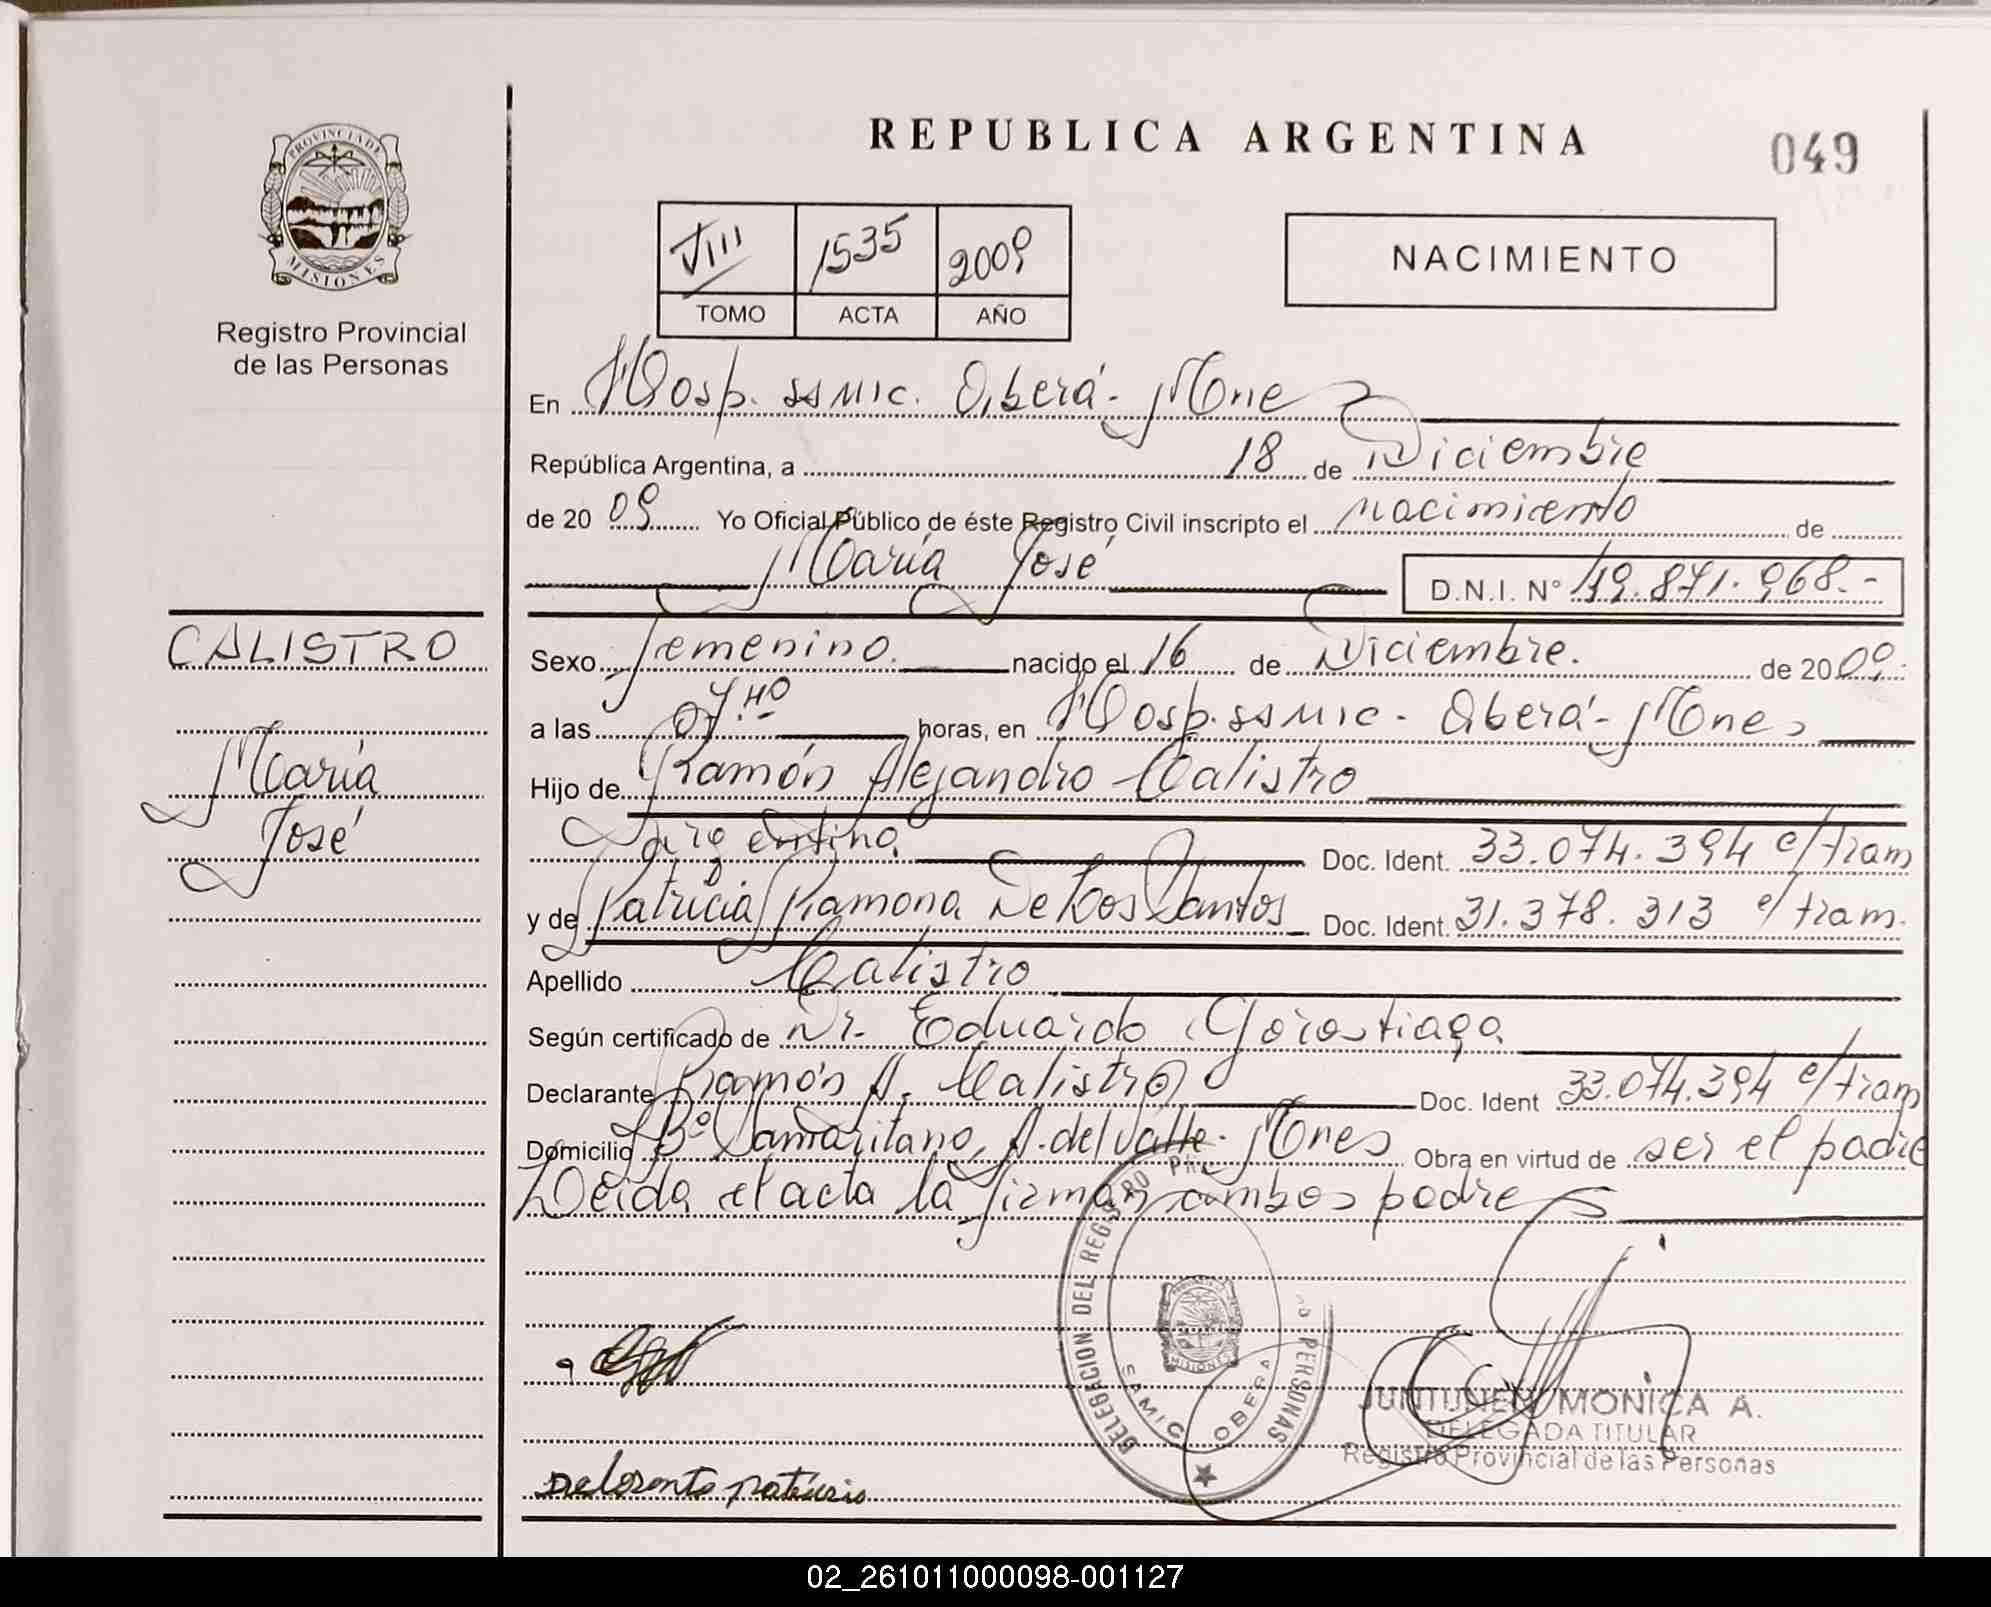 REPUBLICA ARGENTINA
049
PROVINCIA DE
MISIONES
Registro Provincial
de las Personas
VIII 1535 2009
TOMO ACTA AÑO
NACIMIENTO
En Hosp. SSMIC. Oberá - Mnes
República Argentina, a 18 de Diciembre
de 20 09 Yo Oficial Público de éste Registro Civil inscripto el nacimiento de
María José
D.N.I. Nº 49.871.968.-
CALISTRO
María
José
Sexo femenino. nacido el 16 de Diciembre. de 20 09.
a las 07.40 horas, en Hosp. SSMIC - Oberá - Mnes
Hijo de Ramón Alejandro Calistro
Argentino. Doc. Ident. 33.074.394 c/tram
y de Patricia Ramona De Los Santos Doc. Ident. 31.378.313 c/tram.
Apellido Calistro
Según certificado de Dr. Eduardo Gorostiaga
Declarante Ramón A. Calistro Doc. Ident 33.074.394 c/tram
Domicilio Bº Samaritano, A. del Valle - Mnes Obra en virtud de ser el padre
Leída el acta la firman ambos padres
DELEGACION DEL REGISTRO PERSONAS
SAMIC OBERA
MISIONES
JUNTUNEN MONICA A.
DELEGADA TITULAR
Registro Provincial de las Personas
02_261011000098-001127